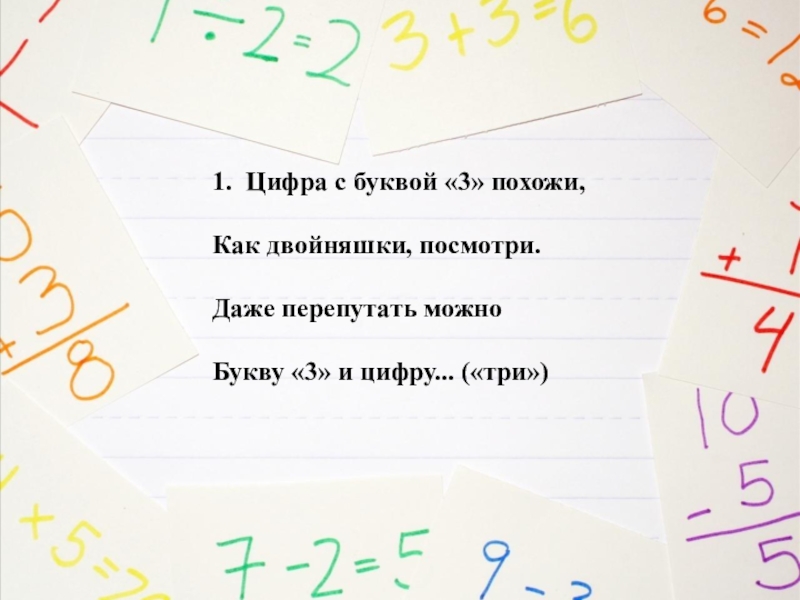 1 ÷ 2 = 2
3 + 3 = 6
6 =
1. Цифра с буквой «З» похожи,
Как двойняшки, посмотри.
Даже перепутать можно
Букву «З» и цифру... («три»)
3
8
+
4
10
- 5
5
+ 5 =
7 - 2 = 5
9 -